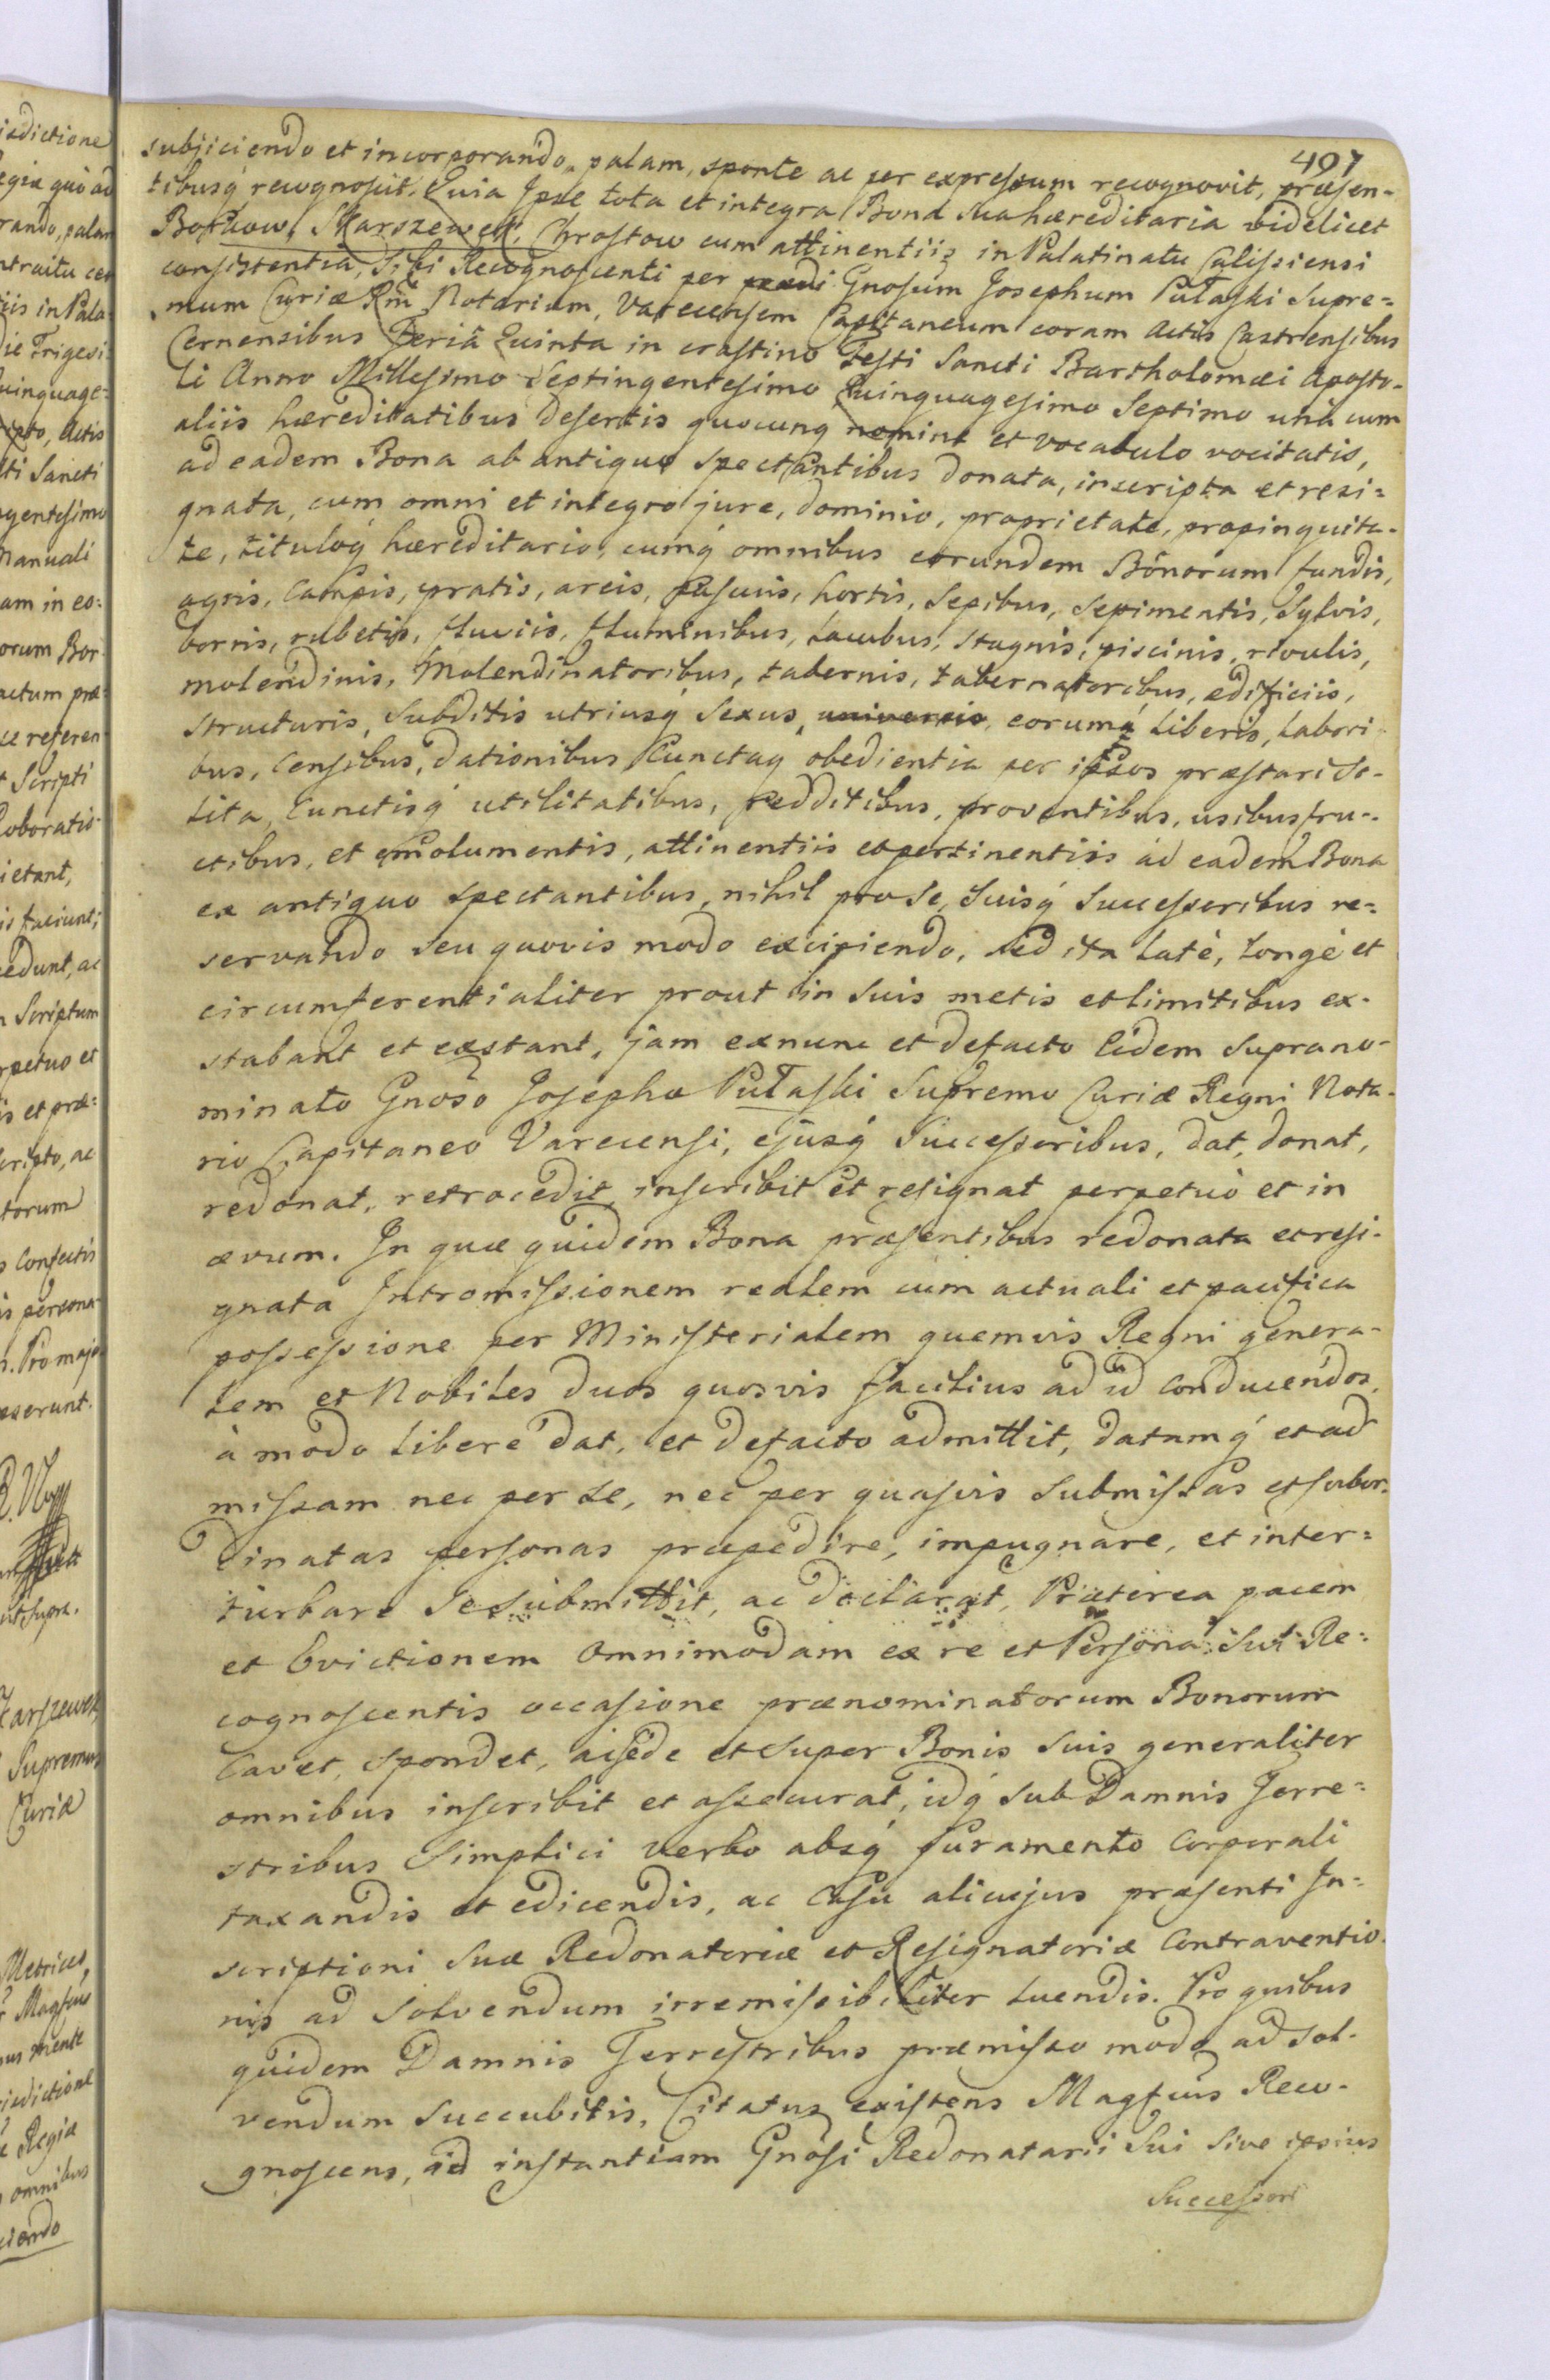 497
subjiciendo et incorporando, palam, sponte ac per expressum recognovit, præsen-
tibusq́ recognoscit. Quia Ipse tota et integra Bona sua hæreditaria videlicet
Marszewek, Chrostow cum attinentiis in Palatinatu Calissiensi
consistentia, Sibi Recognoscenti per Gnosum Josephum Pułaski Supre=
mum Curiæ Rni Notarium, Varecensem Capitaneum coram Actis Castrensibus
Cernensibus Feriâ Quinta in crastino Festi Sancti Bartholomæi Aposto-
li Anno Millesimo Septingentesimo Quinquagesimo Septimo unà cum
aliis hæreditatibus desertis quocunq nomine et vocabulo vocitatis,
ad eadem Bona ab antiquo spectantibus donata, inscripta et resi=
gnata, cum omni et integro jure, dominio, proprietate, propinquita-
te, tituloq́ hæreditario, cumq́ omnibus eorundem Bonorum fundis,
agris, Campis, pratis, areis, pascuis, hortis, Sepibus, Sepimentis, Sylvis,
borris, rubetis, fluviis, fluminibus, Lacubus, Stagnis, piscinis, rivulis,
molendinis, Molendinatoribus, tabernis, tabernatoribus, ædificiis,
structuris, Subditis utriusq́ Sexus, universis, eorumq́ Liberis, Labori-
bus, Censibus, dationibus Cunctaq obedientia per ipsos præstari so-
lita, Cunctisq́ utilitatibus, redditibus, proventibus, usibusfru-
ctibus, et emolumentis, attinentiis et pertinentiis ad eadem Bona
ex antiquo spectantibus, nihil pro Se, Suisq́ Successoribus re=
servando seu quovis modo excipiendo, sed ita Latè, Longè et
circumferentialiter prout in suis metis et limitibus ex-
stabant et exstant, jam exnunc et defacto Eidem Suprano-
minato Gnoso Josepho Pułaski Supremo Curiæ Regni Nota-
rio Capitaneo Varecensi, ejusq́ Successoribus, dat, donat,
redonat, retrocedit, inscribit et resignat perpetuò et in
ævum. In quæ quidem Bona præsentibus redonata et resi-
gnata Intromissionem realem cum actuali et pacifica
possessione per Ministerialem quemvis Regni genera-
lem et Nobiles duos quosvis facilius ad id conducendos,
à modo libere dat, et defacto admittit, datamq́ et ad
missam nec per se, nec per quasvis Submissas et subor-
dinatas personas præpedire, impugnare, et inter=
turbare Se submittit, ac declarat, Præterea pacem
et Evictionem Omnimodam ex re et Persona Sui Re=
cognoscentis occasione prænominatorum Bonorum
Cavet, spondet, et super Bonis suis generaliter
omnibus inscribit et assecurat, idq́ sub Damnis Terre=
stribus Simplici verbo absq́ Juramento Corporali
taxandis et edicendis, ac Casu alicujus præsenti In=
scriptioni Suæ Redonatoriæ et Resignatoriæ Contraventio-
nis ad Solvendum irremissibiliter Luendis. Pro quibus
quidem Damnis Terrestribus præmisso modo ad sol-
vendum Succubitis, Citatus existens Magfcus Reco-
gnoscens, ad instantiam Gnosi Redonatarii Sui Sive ipsius
Successori